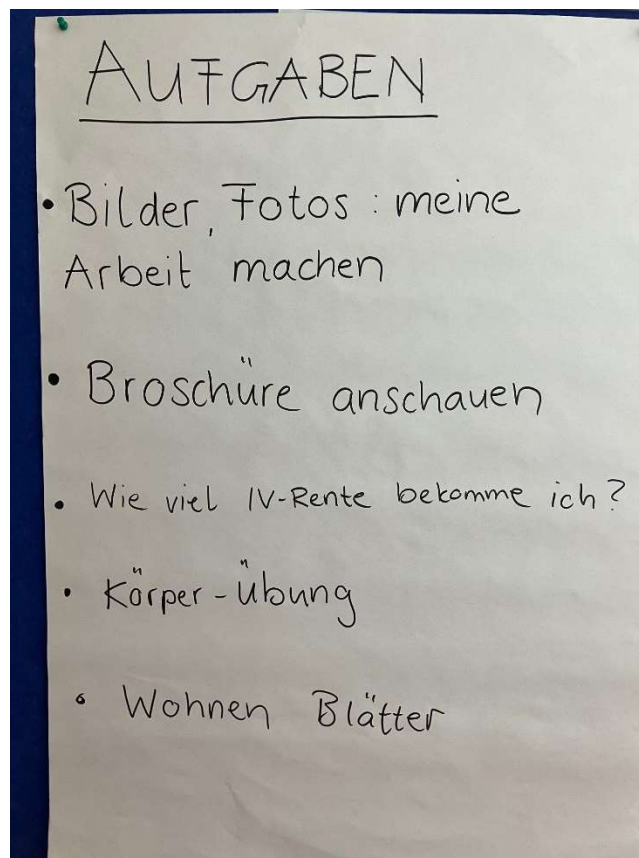 AUFGABEN
• Bilder, Fotos : meine
Arbeit machen
• Broschüre anschauen
• Wie viel IV-Rente bekomme ich?
• Körper-Übung
• Wohnen Blätter